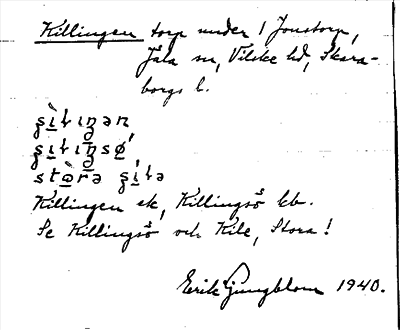 Killingen torp under 1 Jonstorp,
Jäla sn, Vilske hd, Skara-
borgs l.
Killingen ek, Killingsö kb.
Se Killingsö och Kile, Stora!
Erik Ljungblom 1940.